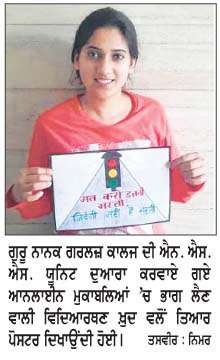 मत करो इतनी
मस्ती
ਗੁਰੂ ਨਾਨਕ ਗਰਲਜ਼ ਕਾਲਜ ਦੀ ਐਨ. ਐਸ.
ਐਸ. ਯੂਨਿਟ ਦੁਆਰਾ ਕਰਵਾਏ ਗਏ
ਆਨਲਾਈਨ ਮੁਕਾਬਲਿਆਂ 'ਚ ਭਾਗ ਲੈਣ
ਵਾਲੀ ਵਿਦਿਆਰਥਣ ਖ਼ੁਦ ਵਲੋਂ ਤਿਆਰ
ਪੋਸਟਰ ਦਿਖਾਉਂਦੀ ਹੋਈ। ਤਸਵੀਰ : ਨਿਮਰ